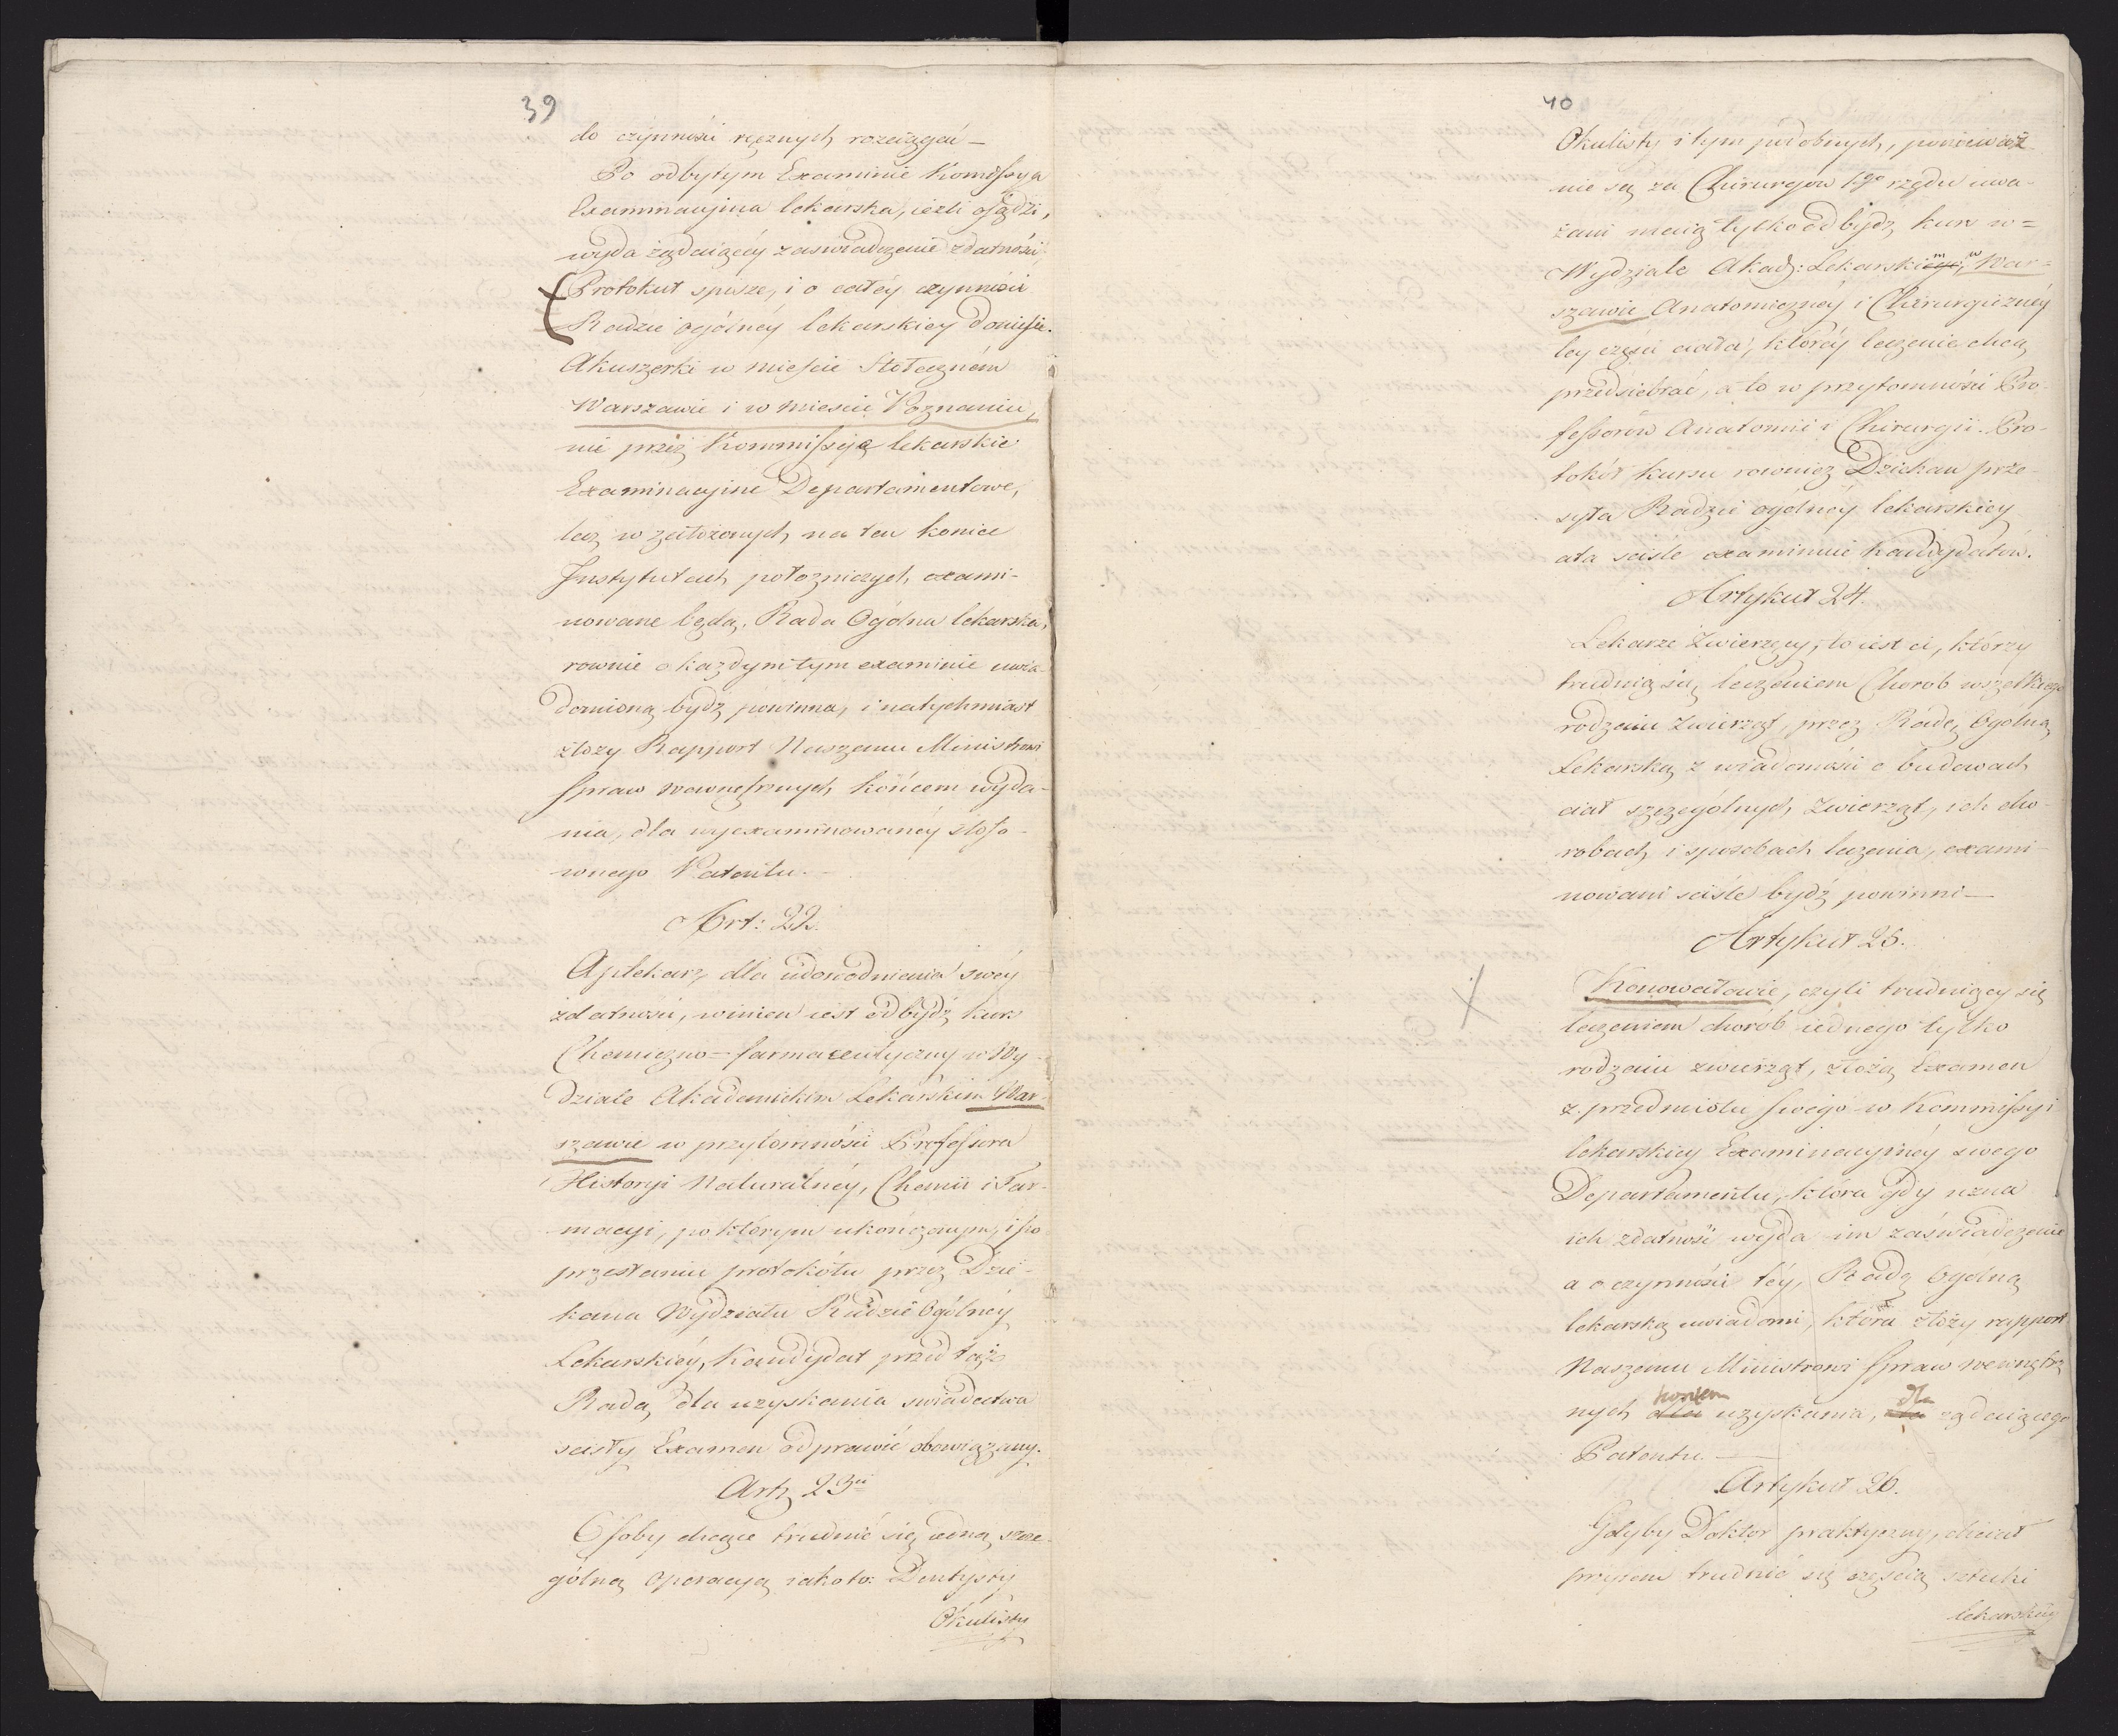 39
do czynności ręcznych rozciągać —
Po odbytym Examinie Komissya
Examinacyina lekarska, ieżli osądzi,
wyda żądaiącéy zaświadczenie zdatności
Protokuł spisze, i o całéy czynności
Radzie ogólnéy lekarskiey doniesie.
Akuszerki w mieście Stołeczném
Warszawie i w mieście Poznaniu,
nie przez Kommissyą lekarskie
Examinacyine Departamentowe,
lecz w założonych na ten koniec
Instytutach położniczych, exami-
nowane będą. Rada Ogólna lekarska,
rownie o każdym tym examinie uwia-
domioną bydź powinna, i natychmiast
złoży Rapport Naszemu Ministrowi
spraw wewnęsznych końcem wyda-
nia, dla wyexaminowanéy stoso-
wnego Patentu. —
Art: 22.
Aptekarz dla udowodnienia swéy
zdatności, winien iest odbydź kurs
Chemiczno=farmaceutyczny w Wy-
dziale Akademickim Lekarskim War-
szawie w przytomności Professora
Historyi Naturalnéy, Chemii i Far-
macyi, po którym ukończonym, i po
przesłaniu protokółu przez Dzie-
kana Wydziału Radzie Ogólnéy
Lekarskiéy, Kandydat przed taż
Radą, dla uzyskania swiadectwa
scisły Examen odprawić obowiązany.
Art. 23ci
Osoby chcące trudnić się iedną szcze-
gólną operacyą iakoto: Dentysty
Okulisty
40
Okulisty i tym podobnych, ponieważ
nie są za Chirurgow 1go rzędu uwa-
żani maią tylko odbydź kurs w=
Wydziale Akad: Lekarskim, w War-
szawie Anatomicznéy i Chirurgicznéy
tey części ciała, któréy leczenie chcą
przedsiebrać, a to w przytomności Pro-
fessorów Anatomii i Chirurgii. Pro-
tokół kursu rownież Dziekan prze-
syła Radzie ogólnéy lekarskiey
ata sciśle examinuie kandydatów.
Artykuł 24.
Lekarze Zwierzęcy, to iest ci, którzy
trudnią się leczeniem Chorob wszelkiego
rodzaiu Zwierząt, przez Radę Ogólną
Lekarską z wiadomości o budowach
ciał szczególnych Zwierząt, ich cho-
robach i sposobach leczenia, exami-
nowani sciśle bydź powinni —
Artykuł 25.
Konowałowie, czyli trudniący się
leczeniem chorób iednego tylko
rodzaiu zwierząt, złożą Examen
z przedmiotu swego w Kommissyi
lekarskiey Examinacyinéy swego
Departamentu, która gdy uzna
ich zdatność wyda im zaświadczenie
a o czynności téy, Radę Ogólną
lekarską uwiadomi, która złoży rapport
Naszemu Ministrowi spraw wewnętrz
nych końcem uzyskania, dla żądaiącego
Patentu. —
Artykuł 26.
Gdyby Doktor praktyczny, chciał
przytem trudnić się częścią sztuki
lekarskiey